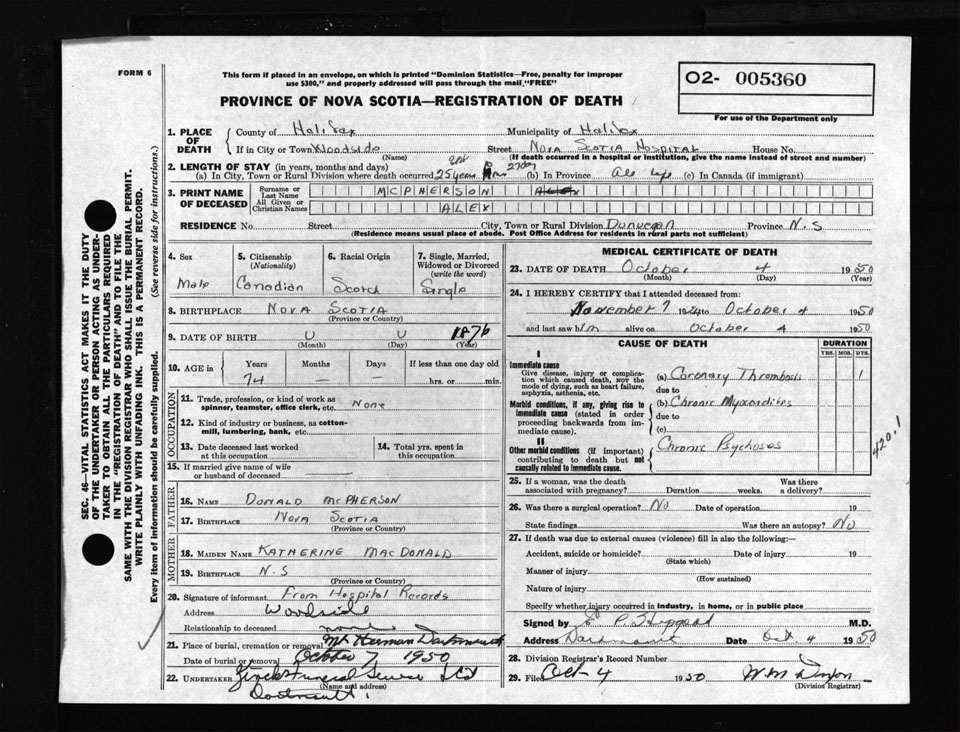 FORM 6
This form if placed in an envelope, on which is printed "Dominion Statistics—Free, penalty for improper
use $300," and properly addressed will pass through the mail "FREE"
O2- 005360
For use of the Department only
PROVINCE OF NOVA SCOTIA—REGISTRATION OF DEATH
SEC. 46—VITAL STATISTICS ACT MAKES IT THE DUTY
OF THE UNDERTAKER OR PERSON ACTING AS UNDER-
TAKER TO OBTAIN ALL THE PARTICULARS REQUIRED
IN THE "REGISTRATION OF DEATH" AND TO FILE THE
SAME WITH THE DIVISION REGISTRAR WHO SHALL ISSUE THE BURIAL PERMIT.
WRITE PLAINLY WITH UNFADING INK. THIS IS A PERMANENT RECORD.
Every item of information should be carefully supplied. (See reverse side for instructions.)
1. PLACE OF DEATH County of Halifax Municipality of Halifax
If in City or Town Woodside Street Nova Scotia Hospital House No.
(Name) (If death occurred in a hospital or institution, give the name instead of street and number)
2. LENGTH OF STAY (in years, months and days)
(a) In City, Town or Rural Division where death occurred 25 years 27 days (b) In Province all life (c) In Canada (if immigrant)
3. PRINT NAME OF DECEASED Surname or Last Name MCPHERSON ALEX
All Given or Christian Names ALEX
RESIDENCE No. Street City, Town or Rural Division Dunvegan Province N.S
(Residence means usual place of abode. Post Office Address for residents in rural parts not sufficient)
4. Sex Male
5. Citizenship (Nationality) Canadian
6. Racial Origin Scotch
7. Single, Married, Widowed or Divorced (write the word) Single
8. BIRTHPLACE Nova Scotia
(Province or Country)
9. DATE OF BIRTH U U 1876
(Month) (Day) (Year)
10. AGE in Years 74 Months — Days — If less than one day old
hrs. or min.
OCCUPATION
11. Trade, profession, or kind of work as
spinner, teamster, office clerk, etc. None
12. Kind of industry or business, as cotton-
mill, lumbering, bank, etc.
13. Date deceased last worked
at this occupation
14. Total yrs. spent in
this occupation
15. If married give name of wife
or husband of deceased
FATHER
16. NAME Donald McPherson
17. BIRTHPLACE Nova Scotia
(Province or Country)
MOTHER
18. MAIDEN NAME Katherine MacDonald
19. BIRTHPLACE N.S
(Province or Country)
20. Signature of informant From Hospital Records
Address Woodside
Relationship to deceased none
21. Place of burial, cremation or removal Mt. Herman Dartmouth
Date of burial or removal October 7, 1950
22. UNDERTAKER Funeral Service Ltd
(Name and address)
Dartmouth
MEDICAL CERTIFICATE OF DEATH
23. DATE OF DEATH October 4 1950
(Month) (Day) (Year)
24. I HEREBY CERTIFY that I attended deceased from:
November 7 1924 to October 4 1950
and last saw him alive on October 4 1950
CAUSE OF DEATH DURATION
YRS. MOS. DYS.
I
Immediate cause
Give disease, injury or complica-
tion which caused death, NOT the
mode of dying, such as heart failure,
asphyxia, asthenia, etc.
(a) Coronary Thrombosis 1
due to
Morbid conditions, if any, giving rise to
immediate cause (stated in order
proceeding backwards from im-
mediate cause).
(b) Chronic Myocarditis
due to
(c)
II
Other morbid conditions (if important)
contributing to death but not
causally related to immediate cause.
Chronic Psychoses
420.1
25. If a woman, was the death
associated with pregnancy? Duration weeks. Was there
a delivery?
26. Was there a surgical operation? No Date of operation 19
State findings Was there an autopsy? No
27. If death was due to external causes (violence) fill in also the following:—
Accident, suicide or homicide? Date of injury 19
(State which)
Manner of injury
(How sustained)
Nature of injury
Specify whether injury occurred in industry, in home, or in public place
Signed by M.D.
Address Dartmouth Date Oct 4 1950
28. Division Registrar's Record Number
29. Filed Oct-4 1950
(Division Registrar)